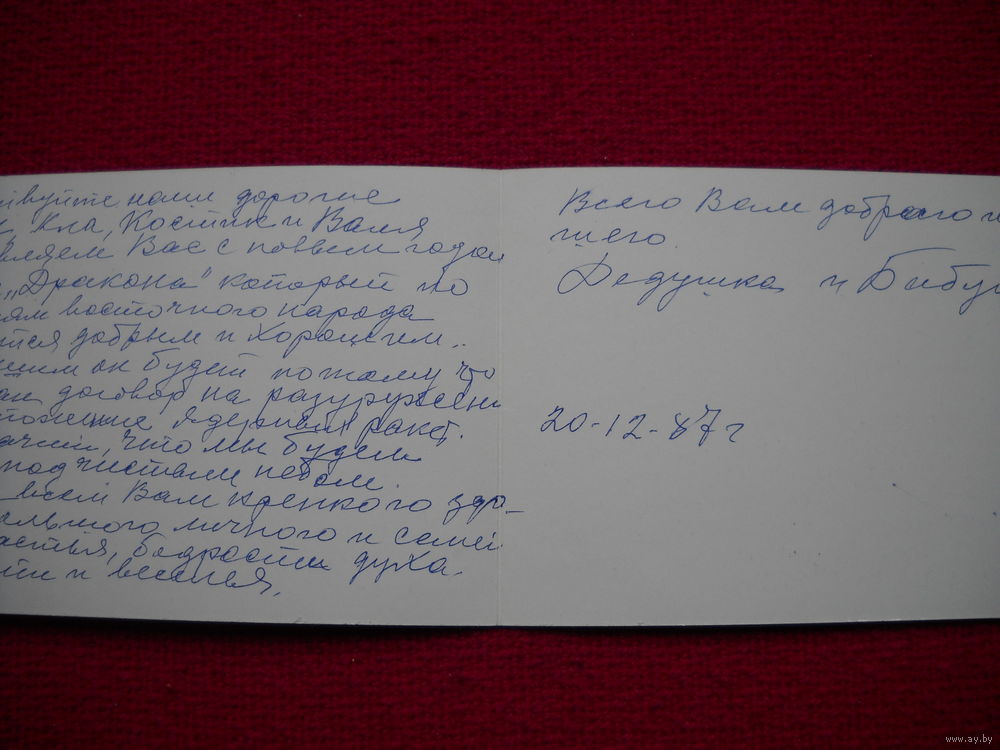 ствуйте наши дорогие
Костик и Валя
вляем Вас с новым годом
„Дракона" который по
ям восточного народа
тся добрым и хорошим..
шим он будет потому что
ан договор на разоружени
тожение ядерных ракет.
ачит, что мы будем
под чистым небом.
всем Вам крепкого здо-
альшого личного и семей
астья, бодрости духа
ти и веселья.
Всего Вам доброго и
шего.
Дедушка и Бабу
20-12-87 г
www.ay.by